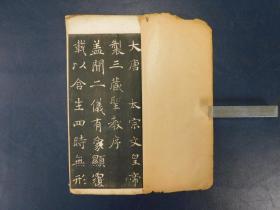 大唐太宗文皇帝
製三藏聖教序
盖聞二儀有象顯覆
載以含生四時無形